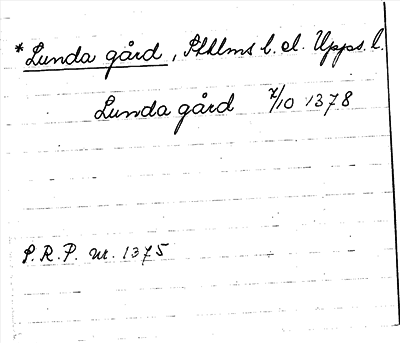 * Lunda gård, Sthlms l. el. Upps. l.
Lunda gård 7/10 1378
P.R.P. nr. 1375